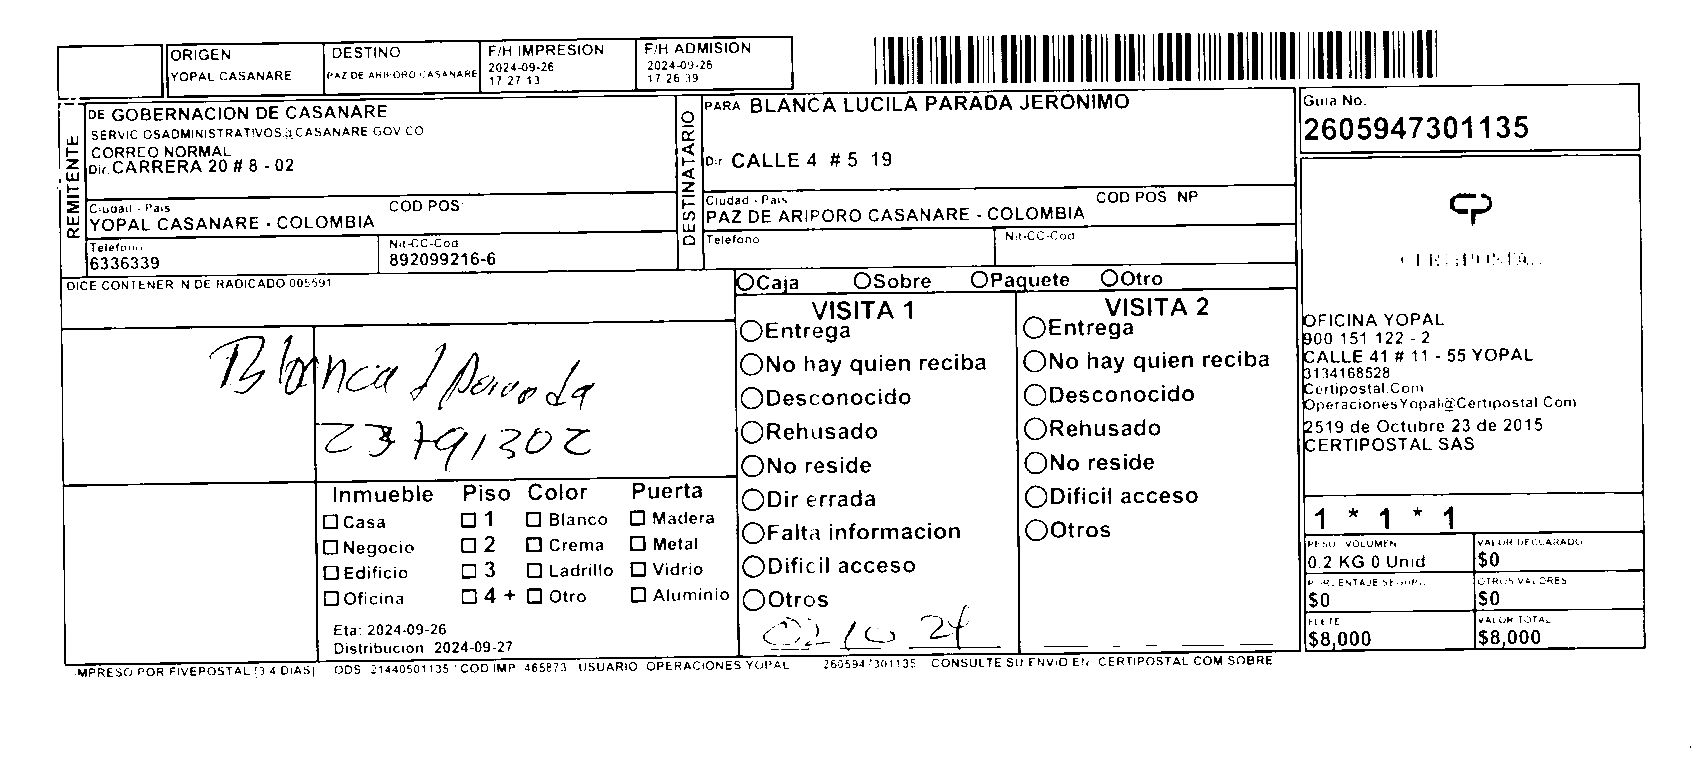 ORIGEN
YOPAL CASANARE
DESTINO
PAZ DE ARIPORO CASANARE
F/H IMPRESION
2024-09-26
17 27 13
F/H ADMISION
2024-09-26
17 26 39
REMITENTE
DE GOBERNACION DE CASANARE
SERVIC OSADMINISTRATIVOS@CASANARE GOV CO
CORREO NORMAL
Dir. CARRERA 20 # 8 - 02
Ciudad - Pais COD POS
YOPAL CASANARE - COLOMBIA
Telefono
6336339
Nit-CC-Cod
892099216-6
DESTINATARIO
PARA BLANCA LUCILA PARADA JERONIMO
Dir CALLE 4 # 5 19
Ciudad - Pais COD POS NP
PAZ DE ARIPORO CASANARE - COLOMBIA
Telefono
Nit-CC-Cod
Guia No.
2605947301135
CERTIPOSTAL
OFICINA YOPAL
900 151 122 - 2
CALLE 41 # 11 - 55 YOPAL
3134168528
Certipostal.Com
OperacionesYopal@Certipostal Com
2519 de Octubre 23 de 2015
CERTIPOSTAL SAS
1 * 1 * 1
PESO VOLUMEN
0.2 KG 0 Unid
VALOR DECLARADO
$0
$0
OTROS VALORES
$0
FLETE
$8,000
VALOR TOTAL
$8,000
DICE CONTENER N DE RADICADO 005591
Caja Sobre Paquete Otro
Blanca l parada
23791302
VISITA 1
Entrega
No hay quien reciba
Desconocido
Rehusado
No reside
Dir errada
Falta informacion
Dificil acceso
Otros
02 10 24
VISITA 2
Entrega
No hay quien reciba
Desconocido
Rehusado
No reside
Dificil acceso
Otros
Inmueble Piso Color Puerta
Casa 1 Blanco Madera
Negocio 2 Crema Metal
Edificio 3 Ladrillo Vidrio
Oficina 4 + Otro Aluminio
Eta: 2024-09-26
Distribucion 2024-09-27
MPRESO POR FIVEPOSTAL (3 4 DIAS) ODS 21440501135 COD IMP 465873 USUARIO OPERACIONES YOPAL 2605947301135 CONSULTE SU ENVIO EN CERTIPOSTAL COM SOBRE